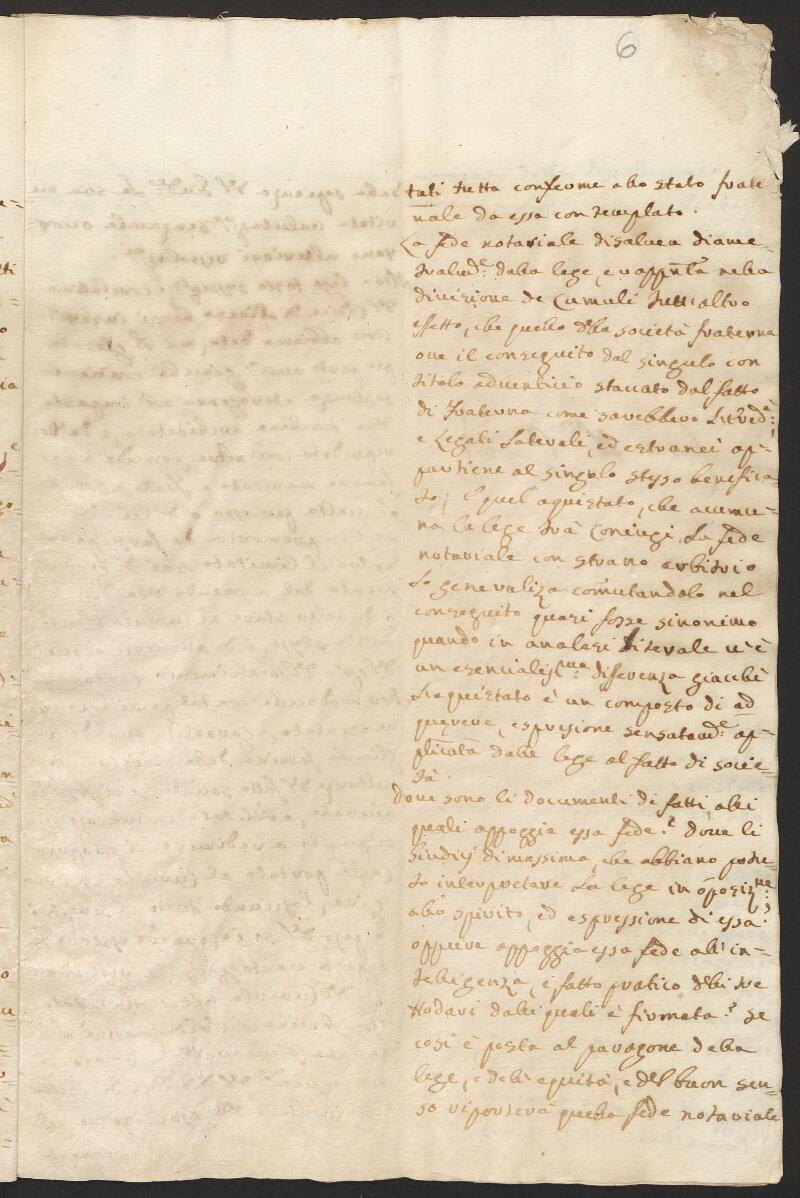 6
tuti tutta conforme alo stato frate
nale da essa contemplato.
La fede notariale disalvea diame-
tralmd.e dala lege, e rapp̃nta nella
divizione de Cumuli tutti altro
effetto, che quelo dla società fraterna
ove il conseguito dal singulo con
titolo adventicio staccato dal fatto
di Fraterna come sarebbero
e Legali Laterali, ed estranei ap-
partiene al singulo stesso benefica-
to; e quel aquistato, che acumu-
na la lege trà Coniugi. La fede
notariale con strano arbitrio
Lo generaliza com̃utandolo nel
conseguito quasi fosse sinonimo
quando in analisi literale v'è
un esencialiss.ma diferenza giachè
L'aquistato è un composto di ad
querere, espresione sensatamd.e ap-
plicata dale lege al fatto di socie-
tà.
Dove sono li documenti di fatti alei
quali appoggia essa fede? Dove li
Giudizj di massima, che abbiano potu-
to interpretare La lege in oposiz.ne
alo spirito, ed espressione di essa?
oppure appoggia essa fede al'in-
teligenza, e fatto pratico dli tre
Nodari dali quali è firmata? Se
cosi è posta al paragone dela
lege, e del'equità, e del buon sen-
so riporterà quella fede notariale